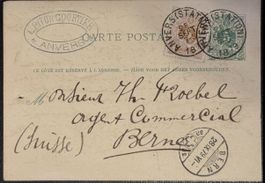 ANTON GOORTEN
ANVERS
CARTE POSTALE
ANVERS (STATION)
1879
ANVERS (STATION)
1879
CE CÔTÉ EST RÉSERVÉ À L'ADRESSE. — ZIJDE VOOR HET ADRES VOORBEHOUDEN.
Monsieur Th Koebel
Agent Commercial
Berne
(Suisse)
BERN